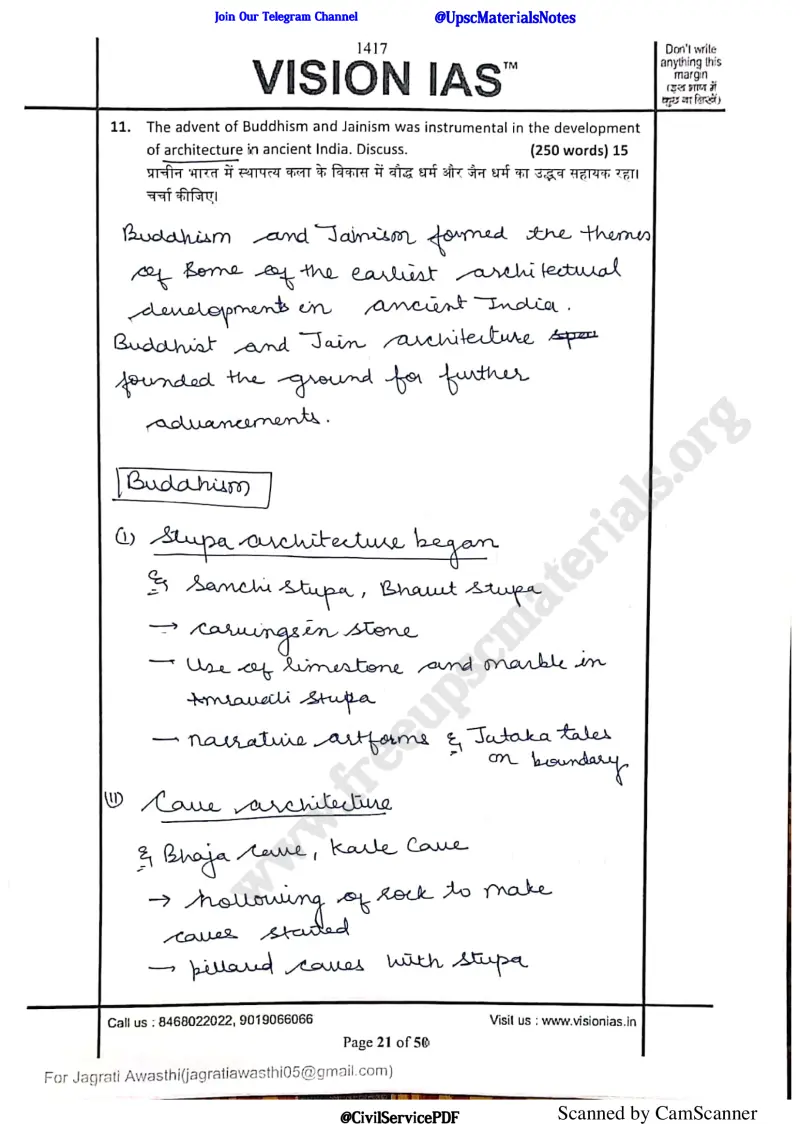 Join Our Telegram Channel @UpscMaterialsNotes
1417
VISION IAS™
Don't write
anything this
margin
(इस भाग में
कुछ ना लिखें)
11. The advent of Buddhism and Jainism was instrumental in the development
of architecture in ancient India. Discuss. (250 words) 15
प्राचीन भारत में स्थापत्य कला के विकास में बौद्ध धर्म और जैन धर्म का उद्भव सहायक रहा।
चर्चा कीजिए।
Buddhism and Jainism formed the themes
of some of the earliest architectural
developments in ancient India.
Buddhist and Jain architecture
founded the ground for further
advancements.
Buddhism
(I) Stupa architecture began
Eg Sanchi Stupa, Bharut Stupa
→ carvings in stone
– Use of limestone and marble in
Amravati Stupa
– narrative artforms Eg Jataka tales
on boundary
(II) Cave architecture
Eg Bhaja cave, Karle Cave
→ hollowing of rock to make
caves started
→ pillared caves with stupa
www.freeupscmaterials.org
Call us : 8468022022, 9019066066 Visit us : www.visionias.in
Page 21 of 50
For Jagrati Awasthi(jagratiawasthi05@gmail.com)
@CivilServicePDF Scanned by CamScanner